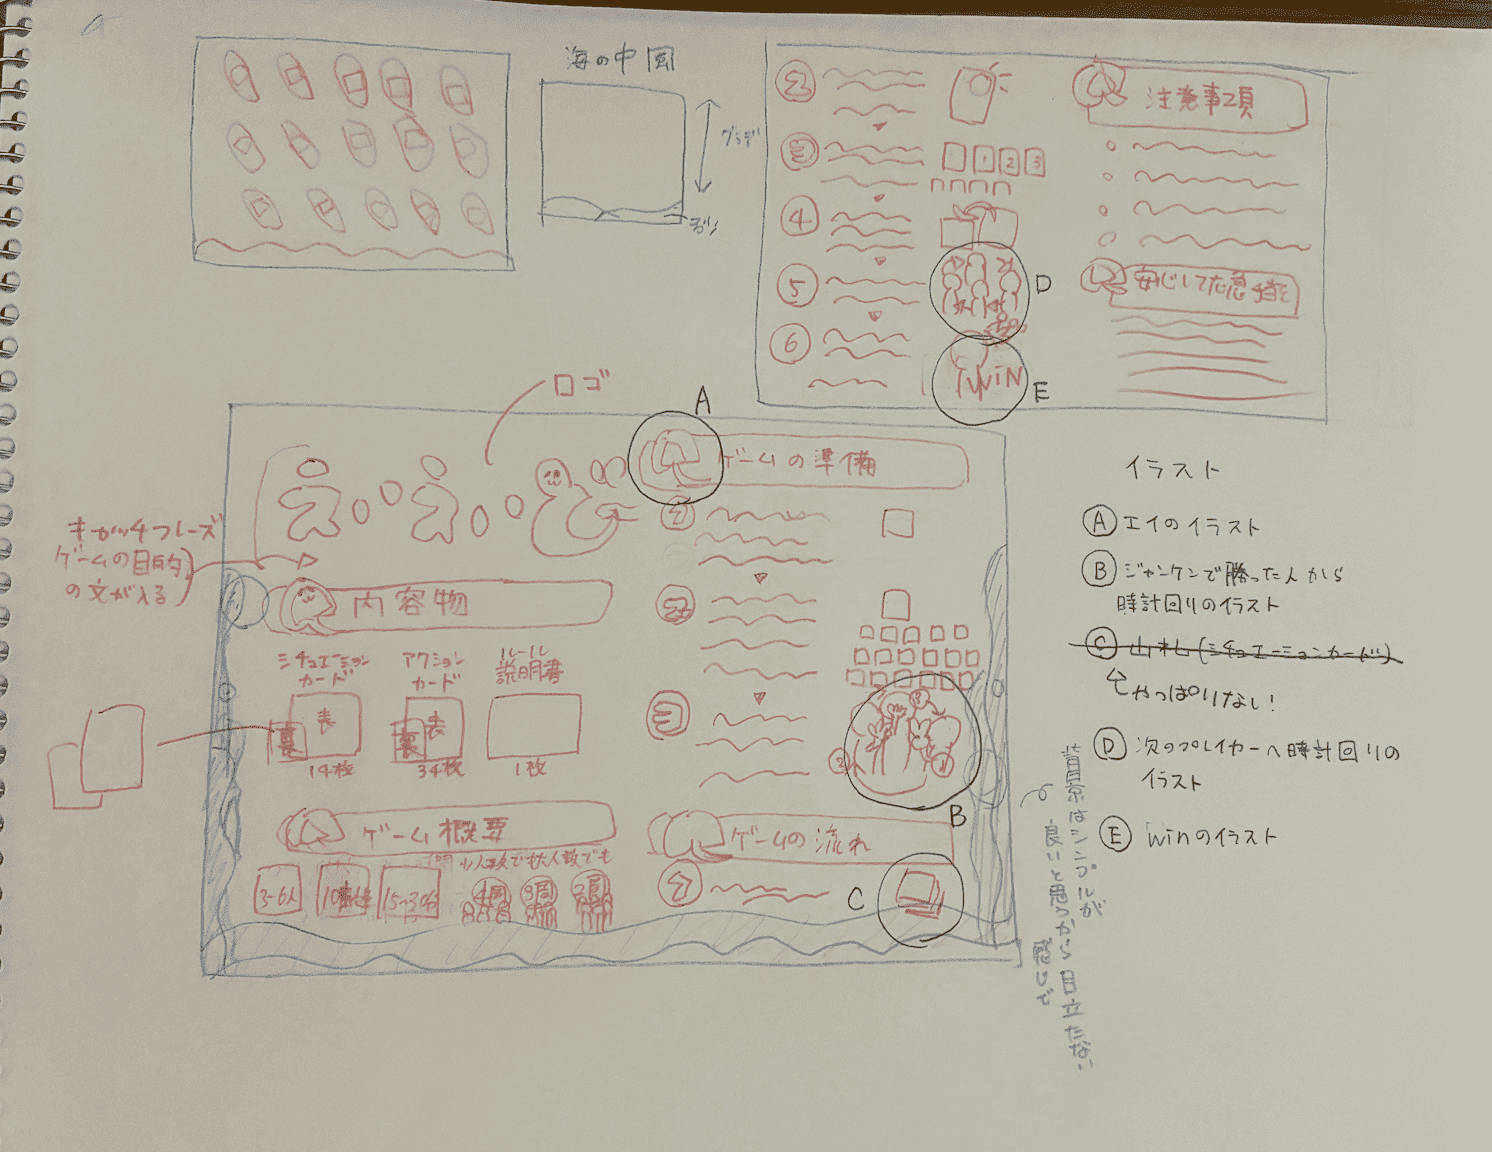 海の中
グラデ
2
3
4
5
6
1
2
3
注意事項
安心して応急手当を
D
WiN
E
ロゴ
A
えいえいと
キャッチフレーズ
ゲームの目的
の文が入る
内容物
シチュエーション
カード
アクション
カード
ルール
説明書
表
裏
14枚
表
裏
34枚
1枚
ゲーム概要
少人数でも大人数でも
3~6人
15~30分
4周
3周
2周
ゲームの準備
1
2
3
3
2
1
B
ゲームの流れ
1
C
イラスト
A エイのイラスト
B ジャンケンで勝った人から
時計回りのイラスト
C 山札(シチュエーションカード)
やっぱりなし!
D 次のプレイヤーへ時計回りの
イラスト
E winのイラスト
背景はシンプルが
良いと思うから目立たない
感じで